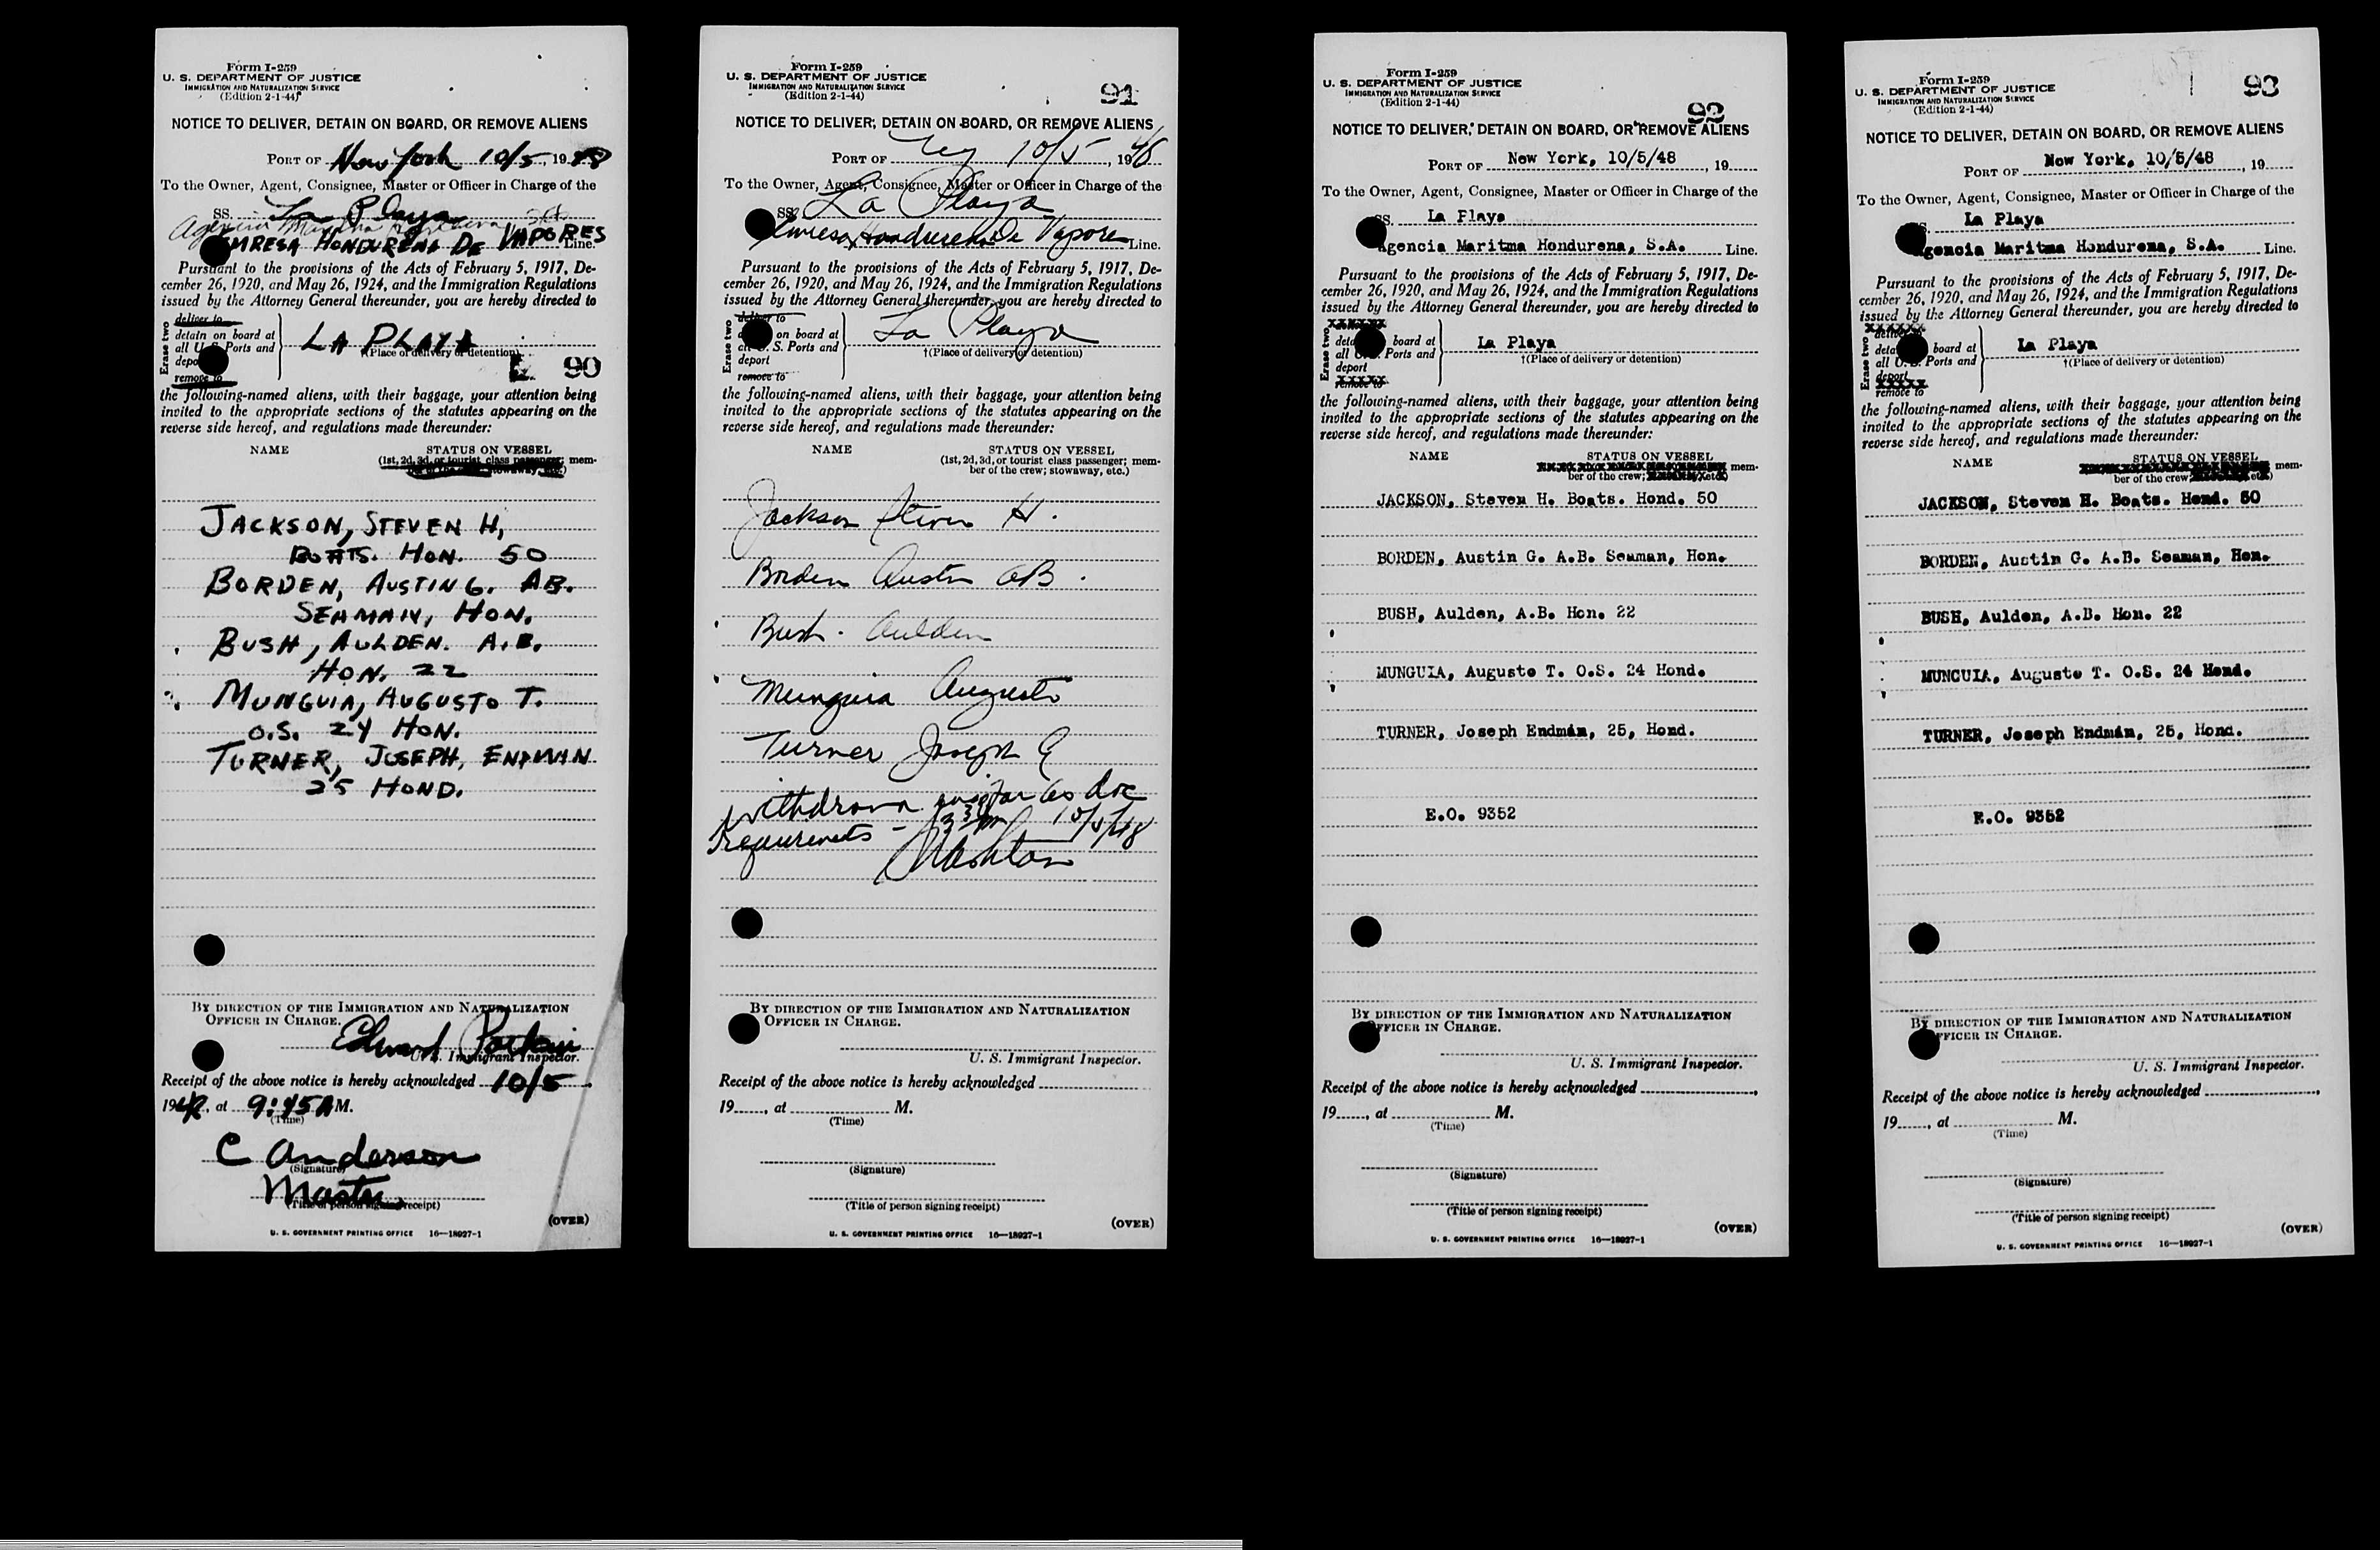 Form I-259
U. S. DEPARTMENT OF JUSTICE
IMMIGRATION AND NATURALIZATION SERVICE
(Edition 2-1-44)
NOTICE TO DELIVER, DETAIN ON BOARD, OR REMOVE ALIENS
PORT OF New York 10/5, 1948
To the Owner, Agent, Consignee, Master or Officer in Charge of the
SS. La Playa
EMPRESA HONDURENA DE VAPORES Line.
Pursuant to the provisions of the Acts of February 5, 1917, De-
cember 26, 1920, and May 26, 1924, and the Immigration Regulations
issued by the Attorney General thereunder, you are hereby directed to
Erase two
deliver to
detain on board at
all U. S. Ports and
deport
remove to
LA PLAYA
†(Place of delivery or detention)
90
the following-named aliens, with their baggage, your attention being
invited to the appropriate sections of the statutes appearing on the
reverse side hereof, and regulations made thereunder:
NAME STATUS ON VESSEL
(1st, 2d, 3d, or tourist class passenger; mem-
ber of the crew; stowaway, etc.)
JACKSON, STEVEN H,
BOATS. HON. 50
BORDEN, AUSTIN G. AB.
SEAMAN, HON.
BUSH, AULDEN. A.B.
HON. 22
MUNGUIA, AUGUSTO T.
O.S. 24 HON.
TURNER, JOSEPH, ENDMAN
25 HOND.
BY DIRECTION OF THE IMMIGRATION AND NATURALIZATION
OFFICER IN CHARGE.
Edward
U. S. Immigrant Inspector.
Receipt of the above notice is hereby acknowledged 10/5
1948, at 9:45 A M.
(Time)
C Anderson
(Signature)
Master.
(Title of person signing receipt)
(OVER)
U. S. GOVERNMENT PRINTING OFFICE 16—18027-1
Form I-259
U. S. DEPARTMENT OF JUSTICE
IMMIGRATION AND NATURALIZATION SERVICE
(Edition 2-1-44)
91
NOTICE TO DELIVER, DETAIN ON BOARD, OR REMOVE ALIENS
PORT OF NY 10/5, 1948
To the Owner, Agent, Consignee, Master or Officer in Charge of the
SS. La Playa
Empresa Hondurena de Vapores Line.
Pursuant to the provisions of the Acts of February 5, 1917, De-
cember 26, 1920, and May 26, 1924, and the Immigration Regulations
issued by the Attorney General thereunder, you are hereby directed to
Erase two
deliver to
on board at
all U. S. Ports and
deport
remove to
La Playa
†(Place of delivery or detention)
the following-named aliens, with their baggage, your attention being
invited to the appropriate sections of the statutes appearing on the
reverse side hereof, and regulations made thereunder:
NAME STATUS ON VESSEL
(1st, 2d, 3d, or tourist class passenger; mem-
ber of the crew; stowaway, etc.)
Jackson Steven H.
Borden Austin AB.
Bush. Aulden
Munguia Augusto
Turner Joseph E
Withdrawn insofar as doc
requirements - 3 30 pm 10/5/48
BY DIRECTION OF THE IMMIGRATION AND NATURALIZATION
OFFICER IN CHARGE.
U. S. Immigrant Inspector.
Receipt of the above notice is hereby acknowledged
19, at M.
(Time)
(Signature)
(Title of person signing receipt)
(OVER)
U. S. GOVERNMENT PRINTING OFFICE 16—18027-1
Form I-259
U. S. DEPARTMENT OF JUSTICE
IMMIGRATION AND NATURALIZATION SERVICE
(Edition 2-1-44)
92
NOTICE TO DELIVER, DETAIN ON BOARD, OR REMOVE ALIENS
PORT OF New York, 10/5/48, 19
To the Owner, Agent, Consignee, Master or Officer in Charge of the
SS. La Playa
Agencia Maritma Hondurena, S.A. Line.
Pursuant to the provisions of the Acts of February 5, 1917, De-
cember 26, 1920, and May 26, 1924, and the Immigration Regulations
issued by the Attorney General thereunder, you are hereby directed to
Erase two
board at
Ports and
deport
remove to
La Playa
†(Place of delivery or detention)
the following-named aliens, with their baggage, your attention being
invited to the appropriate sections of the statutes appearing on the
reverse side hereof, and regulations made thereunder:
NAME STATUS ON VESSEL
mem-
ber of the crew;
JACKSON, Steven H. Boats. Hond. 50
BORDEN, Austin G. A.B. Seaman, Hon.
BUSH, Aulden, A.B. Hon. 22
MUNGUIA, Augusto T. O.S. 24 Hond.
TURNER, Joseph Endmán, 25, Hond.
E.O. 9352
BY DIRECTION OF THE IMMIGRATION AND NATURALIZATION
OFFICER IN CHARGE.
U. S. Immigrant Inspector.
Receipt of the above notice is hereby acknowledged
19, at M.
(Time)
(Signature)
(Title of person signing receipt)
(OVER)
U. S. GOVERNMENT PRINTING OFFICE 16—18027-1
Form I-259
U. S. DEPARTMENT OF JUSTICE
IMMIGRATION AND NATURALIZATION SERVICE
(Edition 2-1-44)
93
NOTICE TO DELIVER, DETAIN ON BOARD, OR REMOVE ALIENS
PORT OF New York, 10/5/48, 19
To the Owner, Agent, Consignee, Master or Officer in Charge of the
La Playa
Agencia Maritma Hondurena, S.A. Line.
Pursuant to the provisions of the Acts of February 5, 1917, De-
cember 26, 1920, and May 26, 1924, and the Immigration Regulations
issued by the Attorney General thereunder, you are hereby directed to
Erase two
board at
all U. S. Ports and
deport
remove to
La Playa
†(Place of delivery or detention)
the following-named aliens, with their baggage, your attention being
invited to the appropriate sections of the statutes appearing on the
reverse side hereof, and regulations made thereunder:
NAME STATUS ON VESSEL
mem-
ber of the crew;
JACKSON, Steven H. Boats. Hond. 50
BORDEN, Austin G. A.B. Seaman, Hon.
BUSH, Aulden, A.B. Hon. 22
MUNGUIA, Augusto T. O.S. 24 Hond.
TURNER, Joseph Endmán, 25, Hond.
E.O. 9352
BY DIRECTION OF THE IMMIGRATION AND NATURALIZATION
OFFICER IN CHARGE.
U. S. Immigrant Inspector.
Receipt of the above notice is hereby acknowledged
19, at M.
(Time)
(Signature)
(Title of person signing receipt)
(OVER)
U. S. GOVERNMENT PRINTING OFFICE 16—18027-1